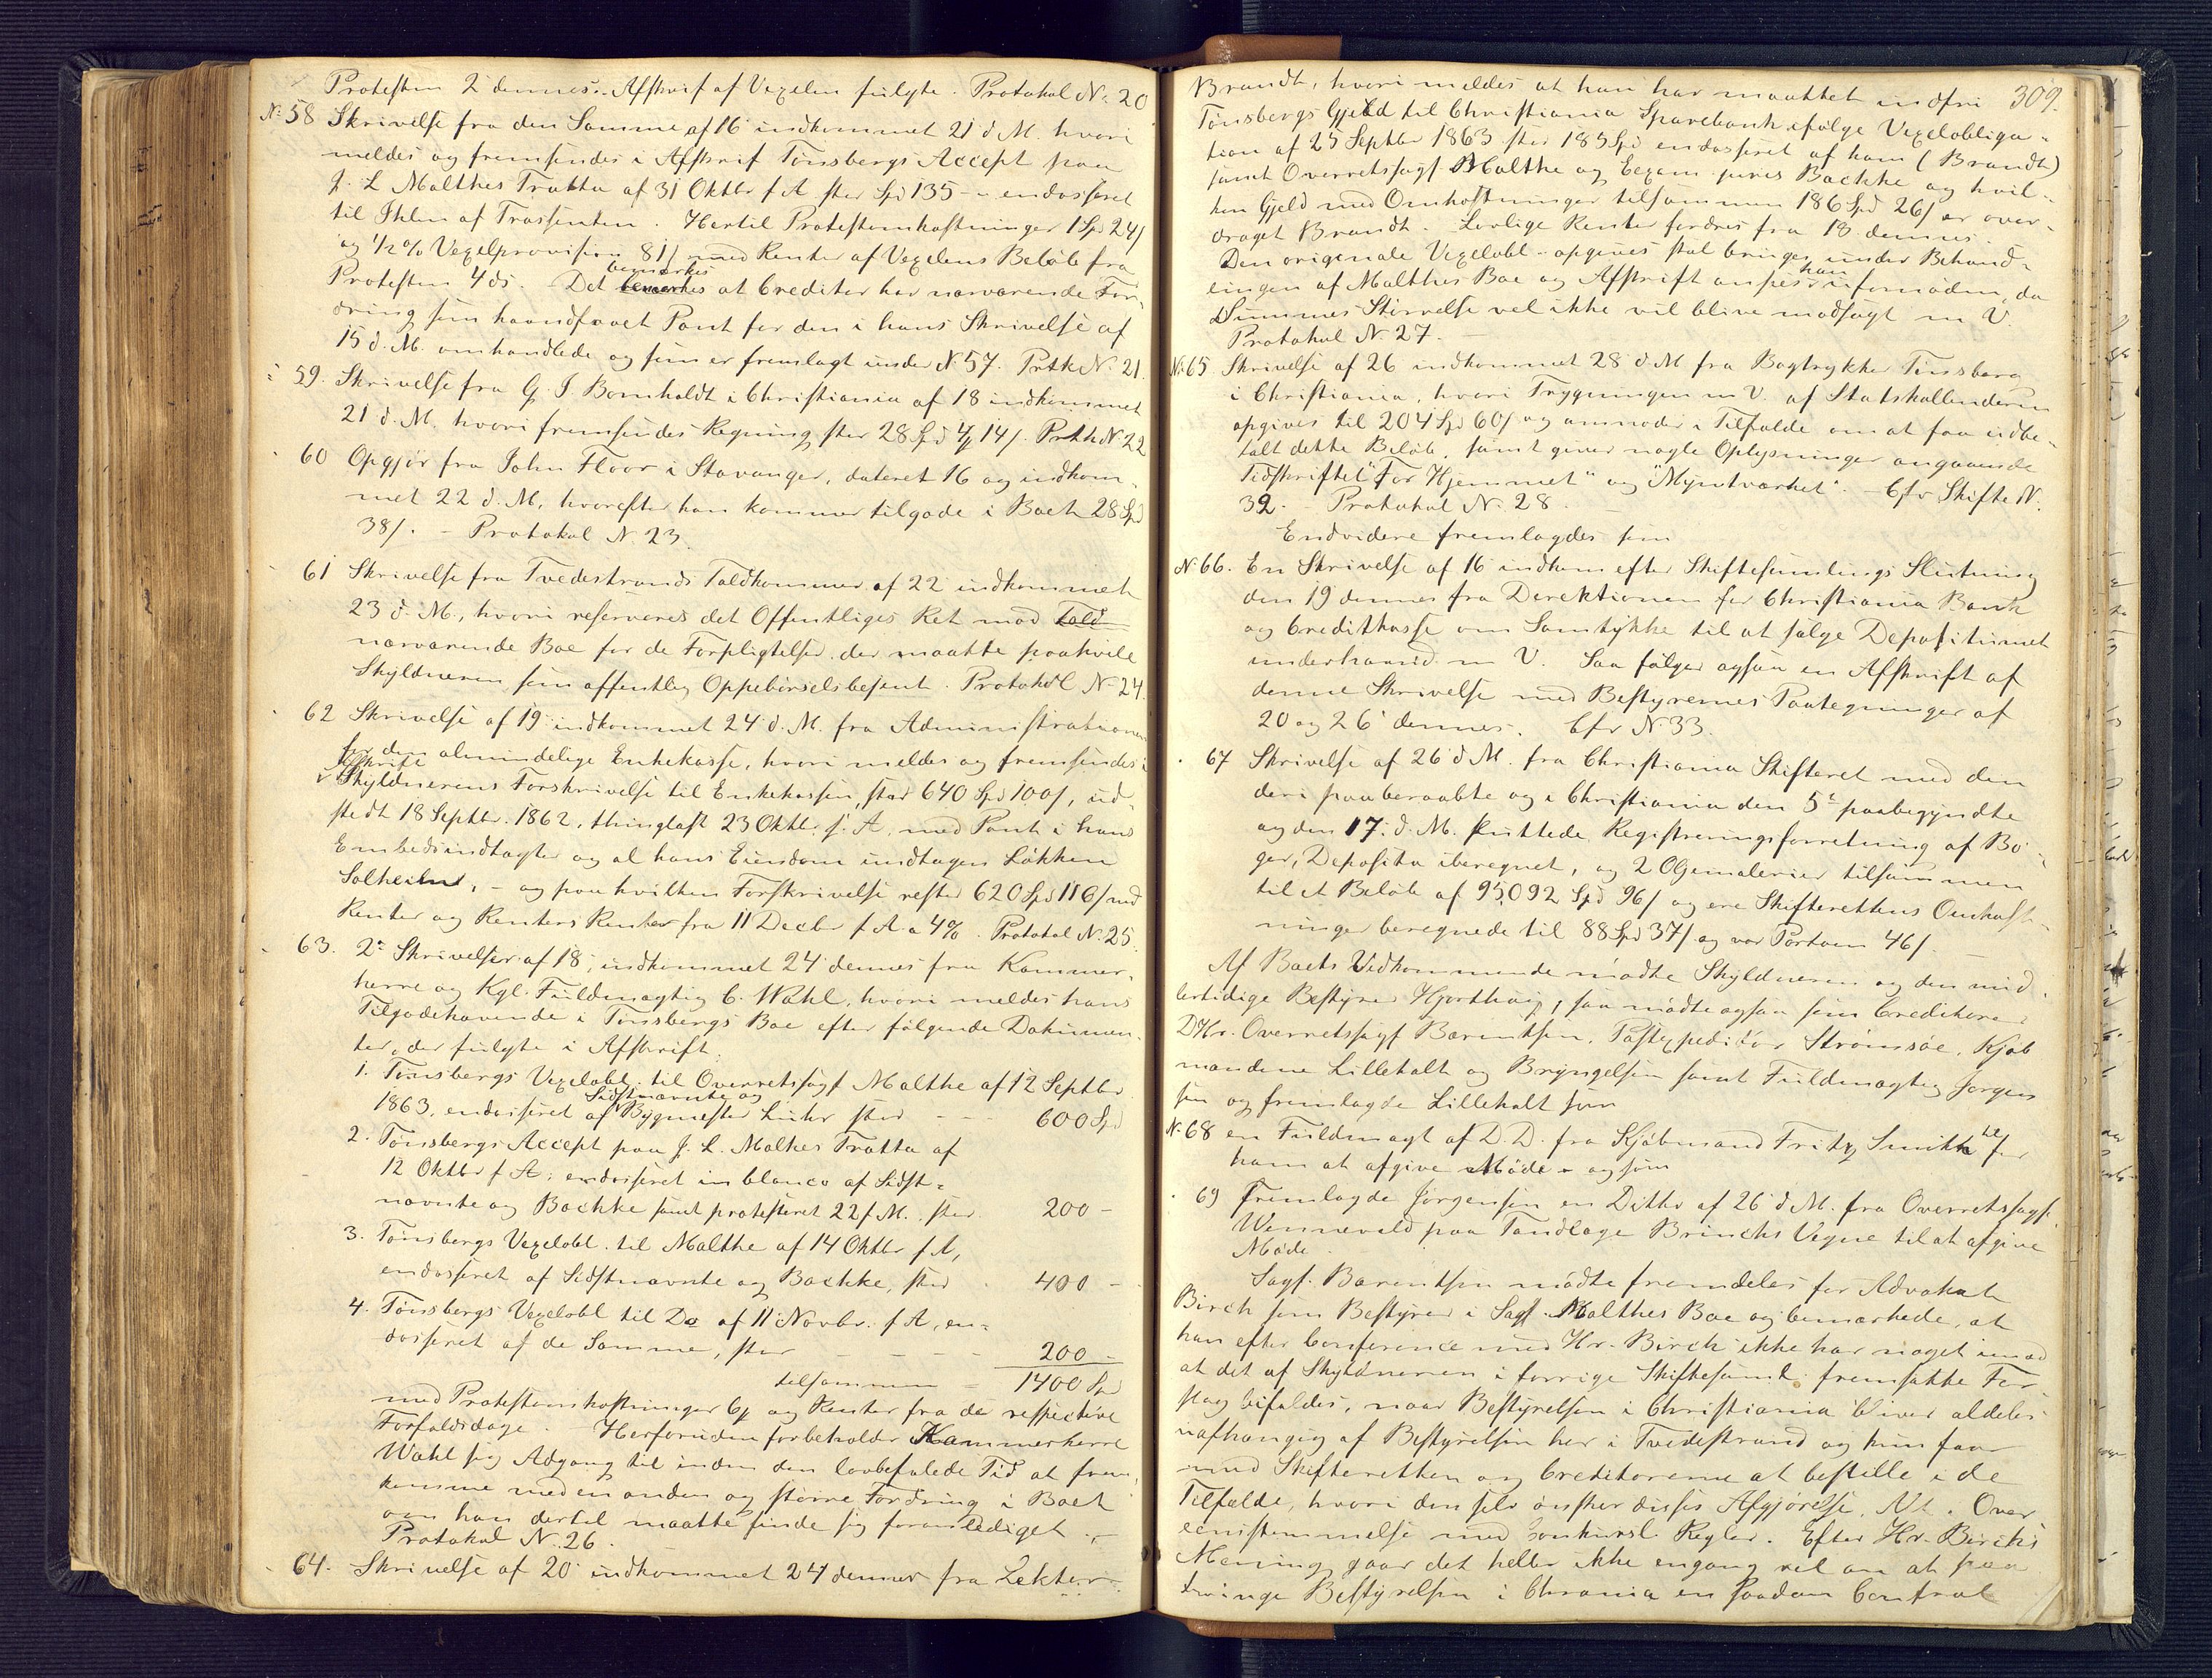 Protesten 2 dennes. Afskrift af Vexelen fulgte. Protokol N. 20
N. 58 Skrivelse fra den Samme af 16 indkommet 21 d. M. hvori
meldes og fremsendes i Afskrift Tønsbergs Accept paa
J. L. Malthes Tratta af 31 Oktbr f A stor Spd 135 - endosseret
til Ihlen af Trassenten. Hertil Protestomkostninger 1 Spd 24 /
og 1/2 % Vexelprovision 81 / med Renter af Vexelens Beløb fra
Protesten 4 ds. Det bemærkes at Creditor har nærværende For-
dring som haandfaaet Pant for den i hans Skrivelse af
15 d. M. omhandlede og som er fremlagt under N. 57. Prtk N. 21
59. Skrivelse fra G. J. Bomholdt i Christiania af 18 indkommet
21 d. M. hvori fremsendes Regning stor 28 Spd 4 14 /. Prtk N. 22
60 Opgjør fra John Floor i Stavanger, dateret 16 og indkom-
met 22 d. M., hvorefter han kommer tilgode i Boet 28 Spd
38 /. - Protokol N. 23.
61 Skrivelse fra Tvedestrands Toldkammer af 22 indkommet
23 d. M., hvori reserveres det Offentliges Ret mod Told
nærværende Boe for de Forpligtelser der maatte paahvile
Skyldneren som offentlig Oppebørselsbetjent. Protokol N. 24.
62 Skrivelse af 19 indkommet 24 d. M. fra Administrationen
for den almindelige Enkekasse, hvori meldes og fremsendes i
Afskrift
Skyldnerens Forskrivelse til Enkekassen, stor 640 Spd 100 /, ud-
stedt 18 Septbr. 1862, thinglæst 23 Oktbr. s. A. med Pant i hans
Embedsindtægter og al hans Eiendom undtagen Løkken
Solheim, - og paa hvilken Forskrivelse rester 620 Spd 116 / med
Renter og Renters Renter fra 11 Decbr f A a 4 %. Protokol N. 25.
63. 2de Skrivelser af 18, indkommet 24 dennes fra Kammer-
herre og Kgl. Fuldmægtig C. Wahl, hvori meldes hans
Tilgodehavende i Tønsbergs Boe efter følgende Dokumen-
ter, der fulgte i Afskrift:
1. Tønsbergs Vexelobl. til Overretssagf Malthe af 12 Septbr
1863, endosseret af Sidstnævnte og Bygmester Linhr stor - - 600 Spd
2. Tønsbergs Accept paa J. L. Malthes Tratta af
12 Oktbr f A: endosseret in blanco af Sidst-
nævnte og Backke samt protesteret 22 f M. stor 200 -
3. Tønsbergs Vexelobl. til Malthe af 14 Oktbr f A,
endosseret af Sidstnævnte og Backke, stor - 400 -
4. Tønsbergs Vexelobl til Do af 11 Novbr. f A, en-
dosseret af de Samme, stor - - - - 200 -
tilsammen - 1400 Spd
med Protestomkostninger og Renter fra de respective
Forfaldsdage. - Herforuden forbeholder Kammerherre
Wahl sig Adgang til inden den lovbefalede Tid at frem-
komme med en anden og større Fordring i Boet
om han dertil maatte finde sig foranlediget.
Protokol N. 26.
64. Skrivelse af 20 indkommet 24 dennes fra Lektor
309.
Brandt, hvori meldes at han har maattet indfri
Tønsbergs Gjeld til Christiania Sparebank ifølge Vexelobliga-
tion af 25 Septbr 1863 stor 185 Spd endosseret af ham (Brandt)
samt Overretssagf. Malthe og Exam. juris Backke og hvil-
ken Gjeld med Omkostninger tilsammen 186 Spd 26 / er over-
draget Brandt. Lovlige Renter fordres fra 18 dennes.
Den originale Vexelobl. opgives skal bringes under Behand-
lingen af Malthes Boe og Afskrift anser han ufornøden, da
Summens Størrelse vel ikke vil blive modsagt m V.
Protokol N. 27.
N. 65 Skrivelse af 26 indkommet 28 d. M fra Bogtrykker Tønsberg
i Christiania, hvori Trygningen m V. af Statskallenderen
opgives til 204 Spd 60 / og anmoder i Tilfælde om at faa udbe-
talt dette Beløb, samt giver nogle Oplysninger angaaende
Tidskriftet "For Hjemmet" og "Myntværket". - Cfr Skifte N.
32. - Protokol N. 28.
Endvidere fremlagdes som
N. 66. En Skrivelse af 16 indkom efter Skiftesamlings Slutning
den 19 dennes fra Direktionen for Christiania Bank
og Creditkasse om Samtykke til at sælge Depositumet
underhaand m V. Saa følger ogsaa en Afskrift af
denne Skrivelse med Bestyrernes Paategninger af
20 og 26 dennes. Cfr N. 33.
67 Skrivelse af 26 d M. fra Christiania Skifteret med den
deri paaberaabte og i Christiania den 5te paabegyndte
og den 17. d. M. sluttede Registreringsforretning af Bo-
ger, Deposita iberegnet, og 2 Oljemalerier tilsammen
til et Beløb af 95,092 Spd 96 / og ere Skifterettens Omkost-
ninger beregnede til 88 Spd 37 / og var Portoen 46 /.
Af Boets Vedkommende mødte Skyldneren og den mid-
lertidige Bestyrer Hjorthøiy, saa mødte ogsaa som Creditorer
DHr. Overretssagf Barentsen, Postexpeditør Strømsøe, Kjøb
mændene Lilleholt og Bryngelsen samt Fuldmægtig Jørgen
sen og fremlagde Lilleholt som
N. 68 en Fuldmagt af D. D. fra Kjøbmand Fritz Smith til for
ham at afgive Møde - og som
69 fremlagde Jørgensen en Ditto af 26 d M. fra Overretssagf.
Wennevold paa Tandlæge Brinchs Vegne til at afgive
Møde.
Sagf. Barentsen mødte fremdeles for Advokat
Birch som Bestyrer i Sagf. Malthes Boe og bemærkede, at
han efter Conference med Hr. Birch ikke har noget imod
at det af Skyldneren i forrige Skiftesaml. fremsatte For
slag bifaldes, naar Bestyrelsen i Christiania bliver aldeles
uafhængig af Bestyrelsen her i Tvedestrand og kun faar
med Skifteretten og Creditorerne at bestille i de
Tilfælde, hvori den selv ønsker disses Afgjørelse, Alt i Over
eenstemmelse med Konkursl. Regler. Efter Hr. Birchs
Mening gaar det heller ikke engang vel an at paa
tvinge Bestyrelsen i Chrania en saadan Control